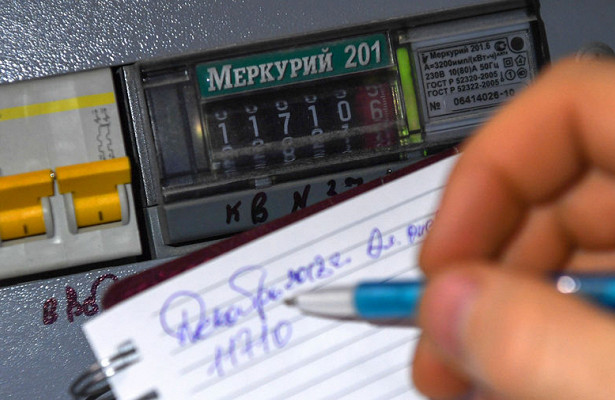 Меркурий 201
11710 6
Меркурий 201.5
А=3200имп/(кВт•ч)
230В 10(80)А 50Гц
ГОСТ Р 52320-2005
ГОСТ Р 52322-2005
№ 06414026-10
I I
кв N
Декабрь 2012г. Эл.
11710